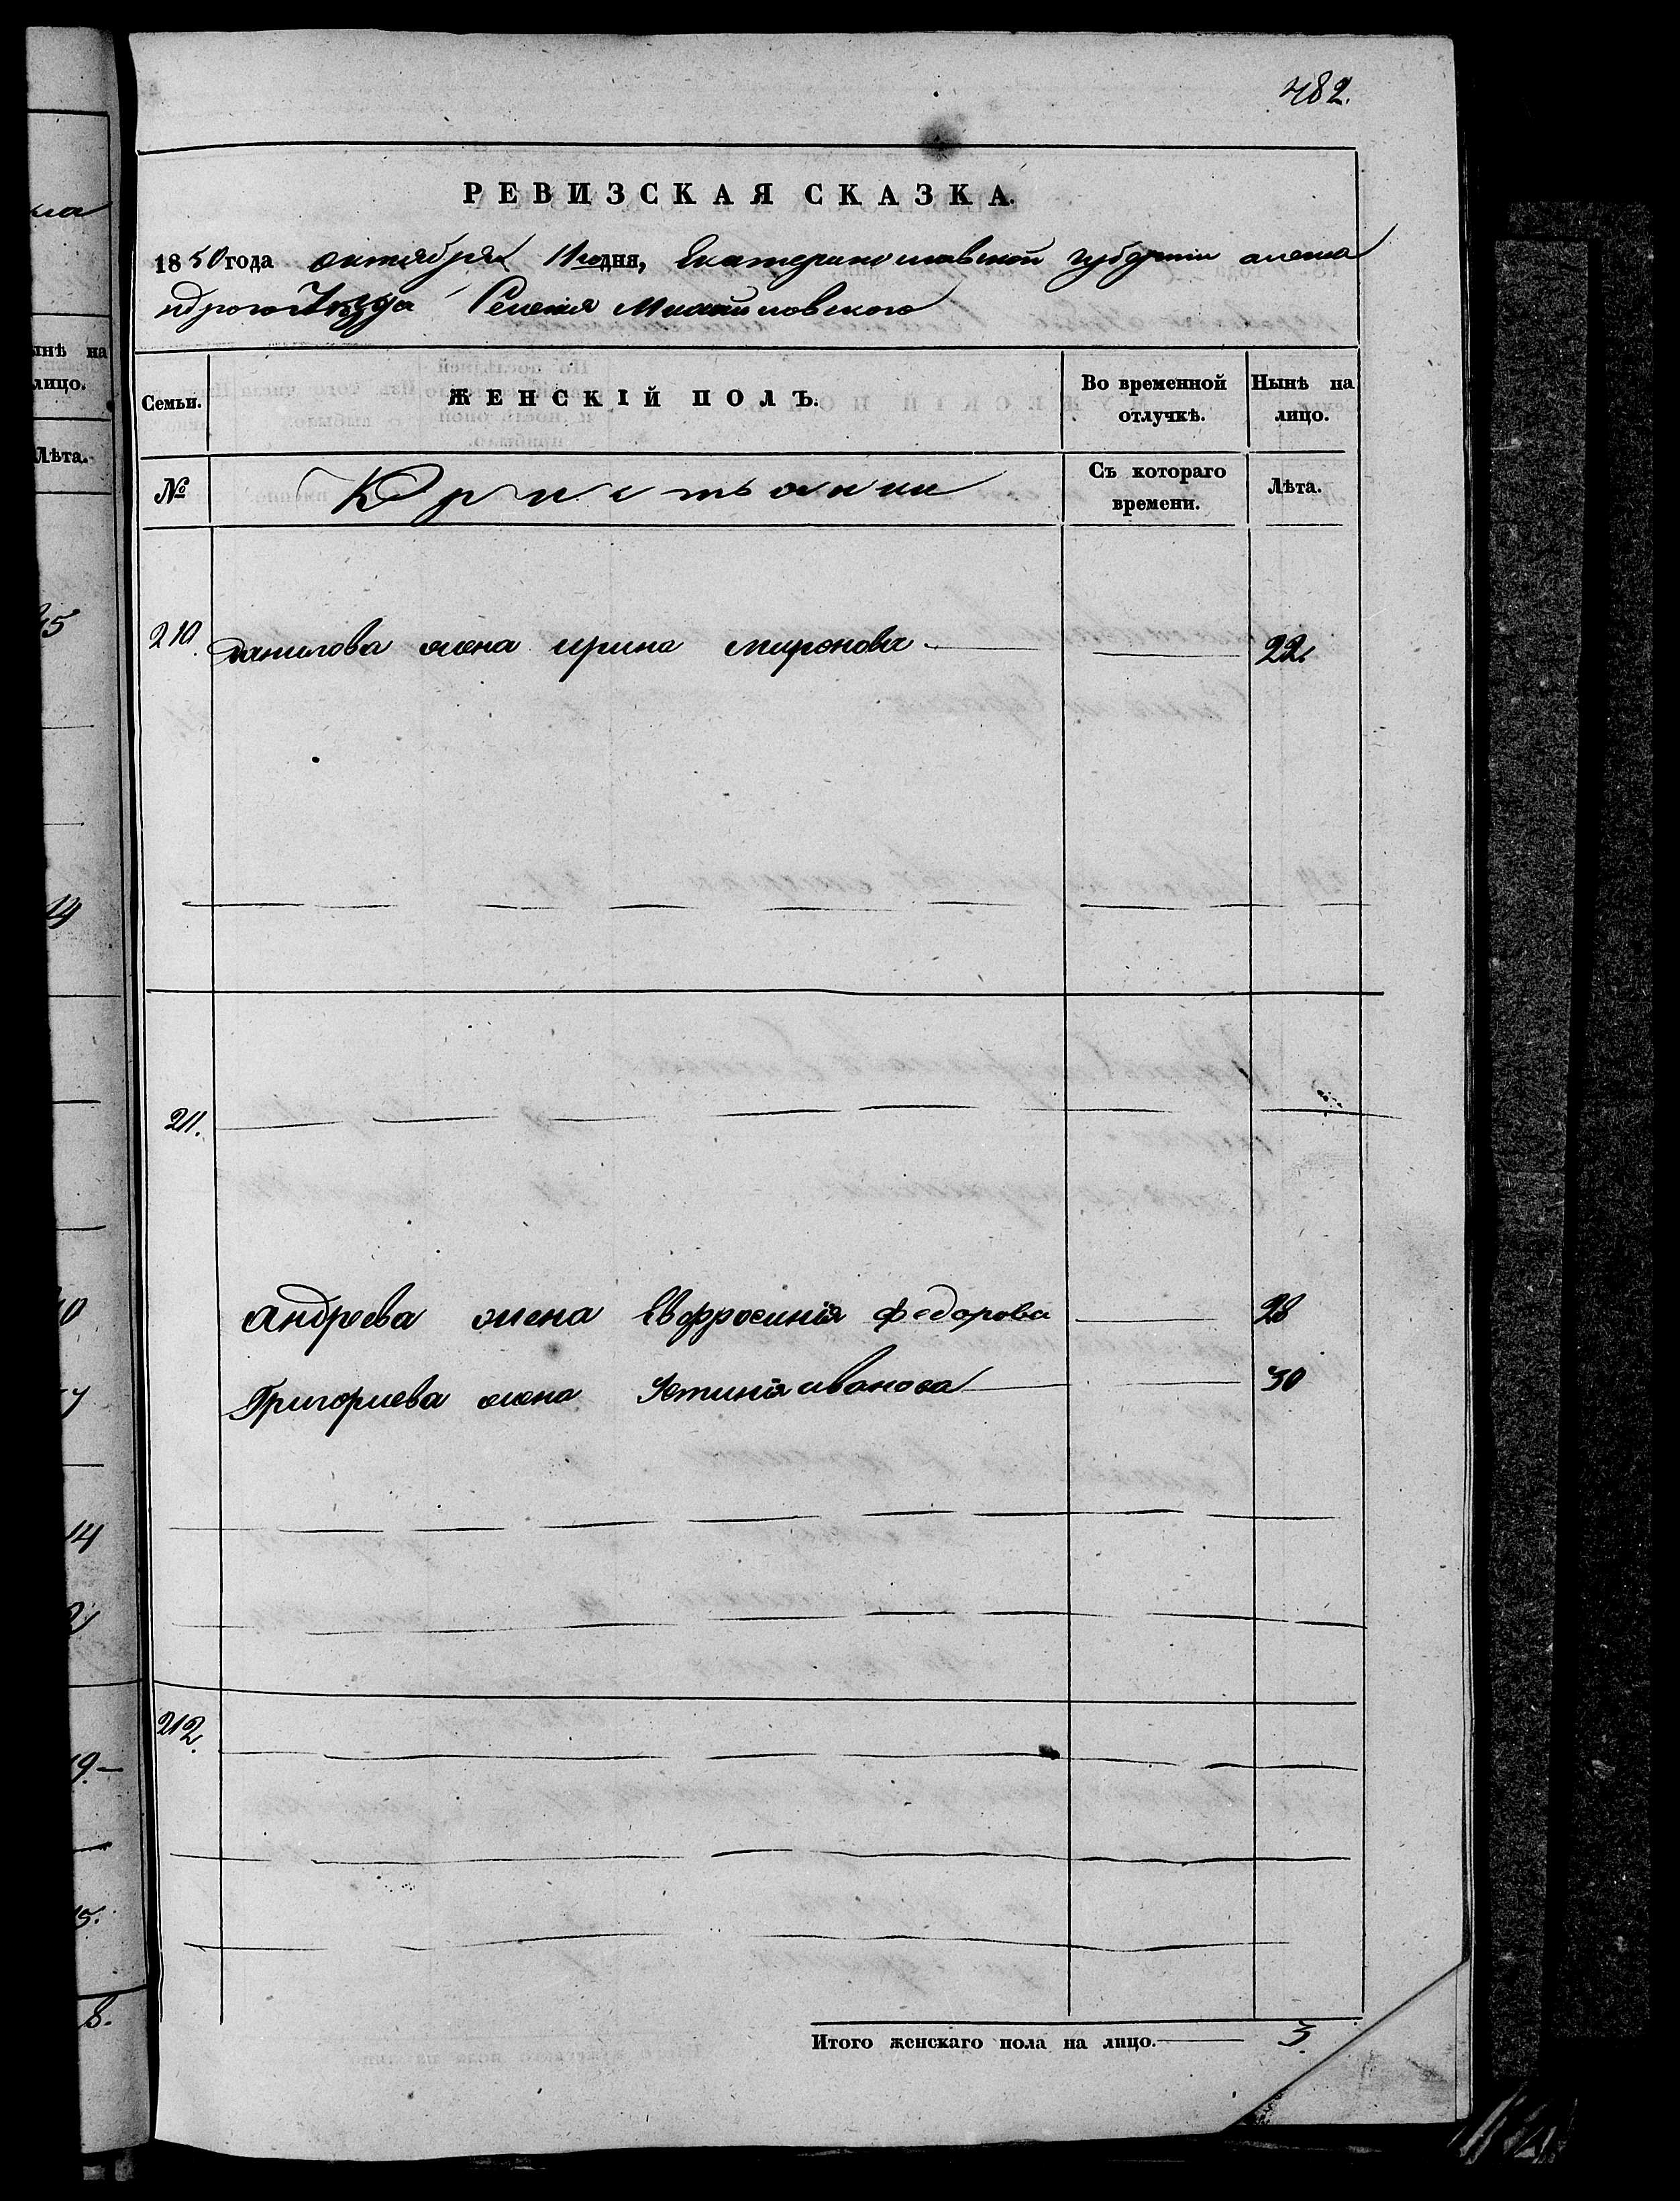 482.
РЕВИЗСКАЯ СКАЗКА.
1850 года октября 11го дня, Екатеринославской губернии алекса
ндроского уезда Селения Михайловского
Семьи.
ЖЕНСКІЙ ПОЛЪ.
Во временной отлучкѣ.
Нынѣ на лицо.
№
Крестьянки
Съ котораго времени.
Лѣта.
210. данилова жена ирина миронова 22
211.
андреева жена Евфросинія федорова 28
Григориева жена Устинія иванова 30
212.
Итого женскаго пола на лицо. 3.
ынѣ на
лицо.
Лѣта.